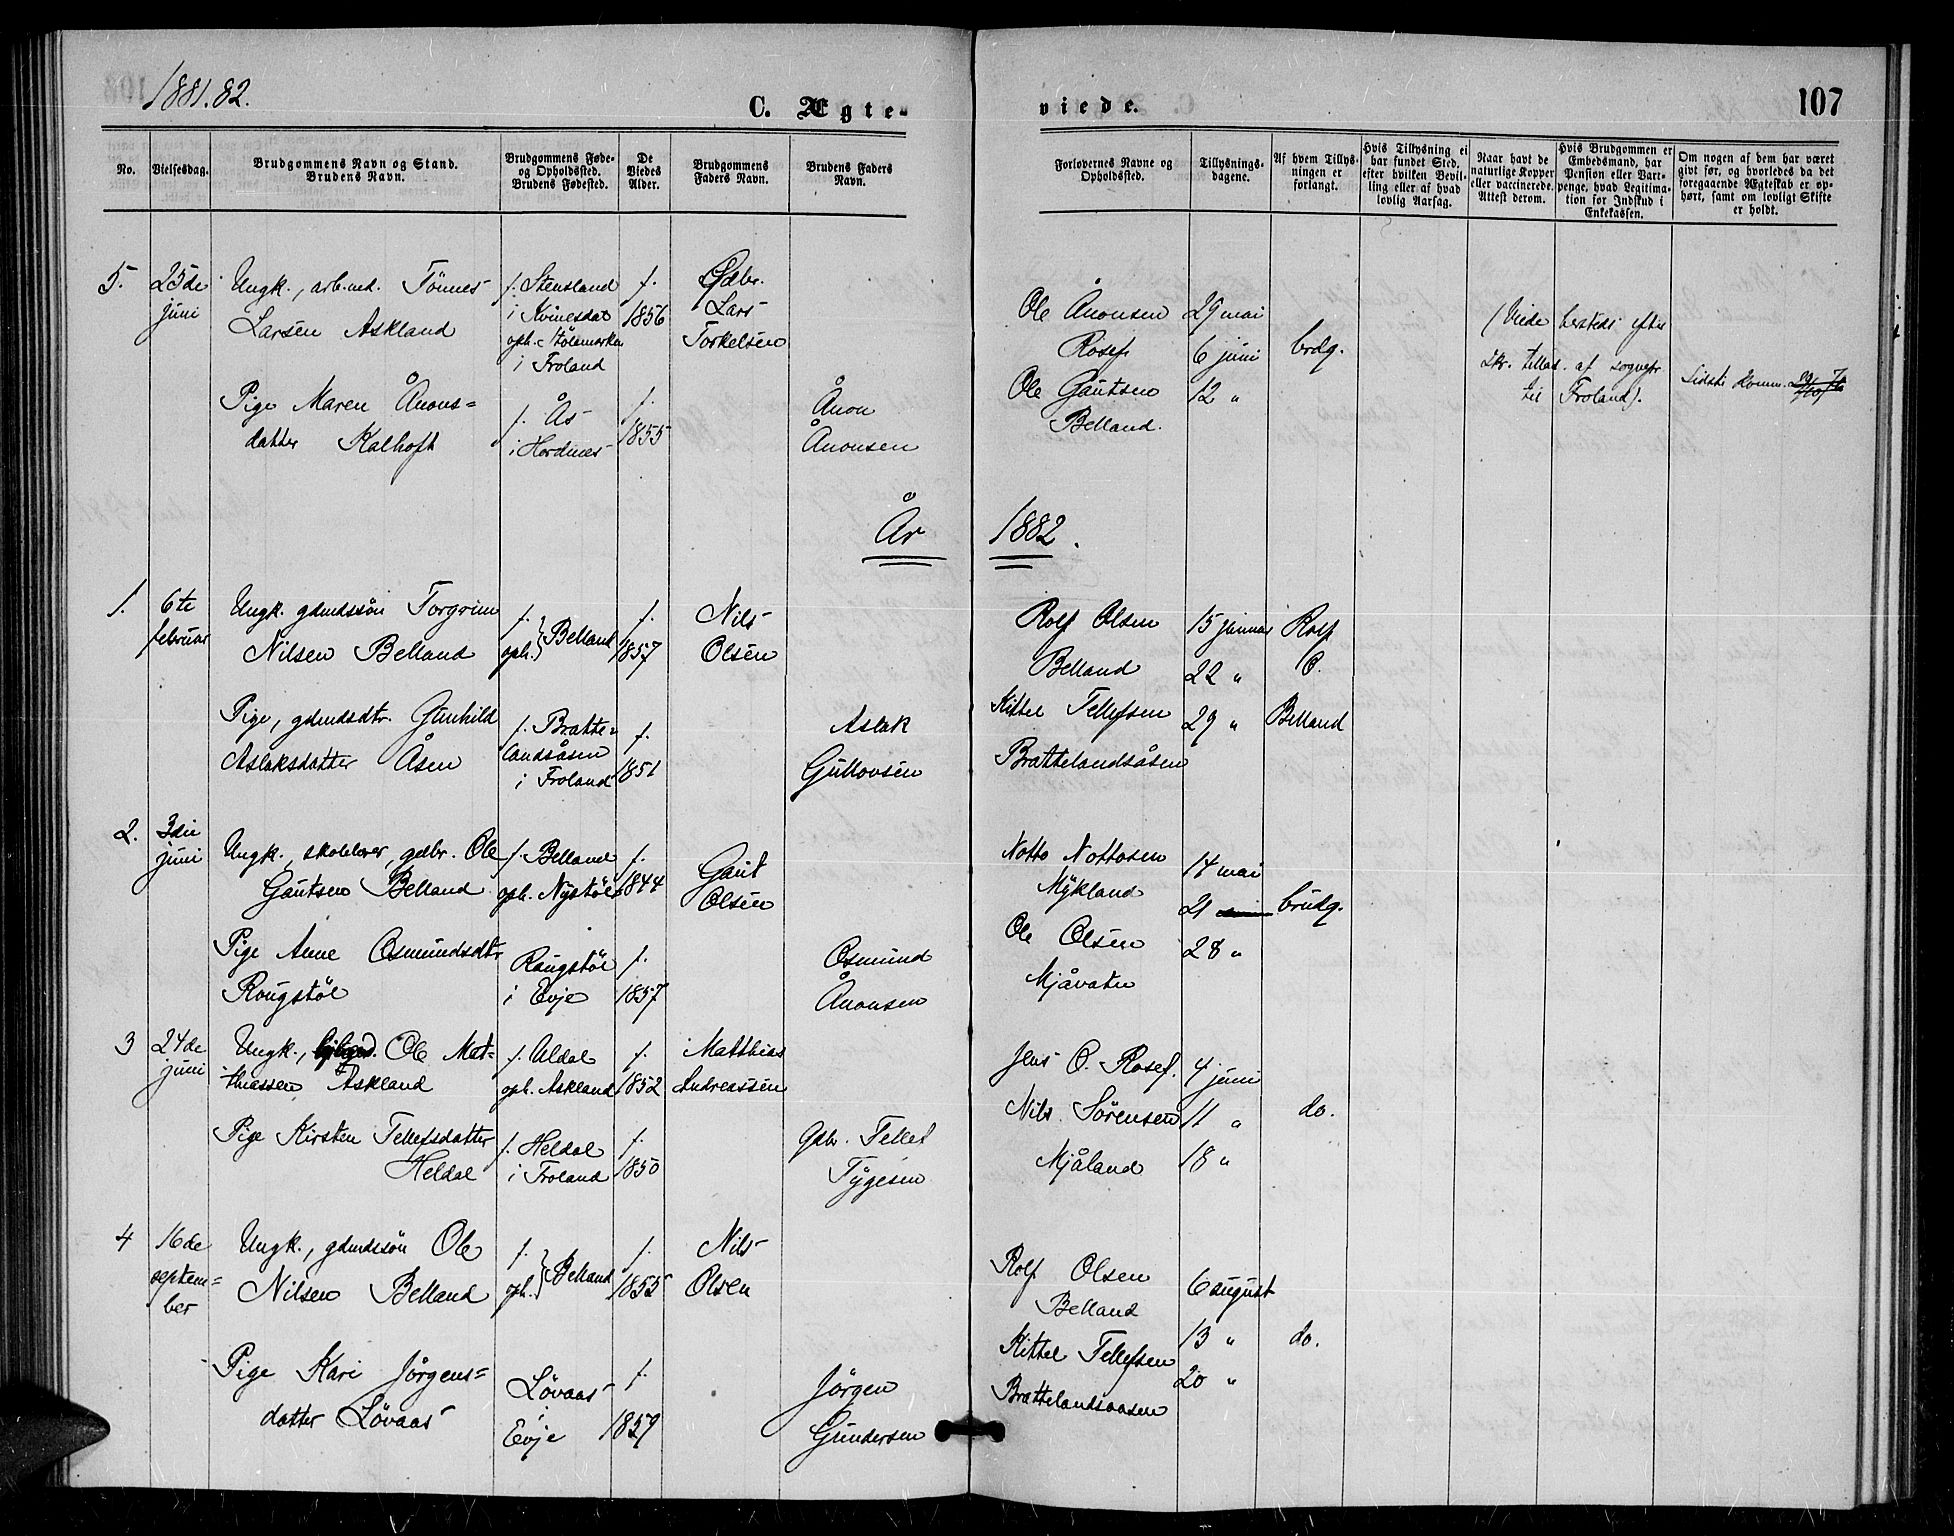 1881.82.
C. Ægte-
viede.
107
No.
Vielsesdag.
Brudgommens Navn og Stand.
Brudens Navn.
Brudgommens Føde-
og Opholdsted.
Brudens Fødested.
De
Viedes
Alder.
Brudgommens
Faders Navn.
Brudens Faders
Navn.
Forlovernes Navne og
Opholdsted.
Tillysnings-
dagene.
Af hvem Tillys-
ningen er
forlangt.
Hvis Tillysning ei
har fundet Sted,
efter hvilken Bevil-
ling eller af hvad
lovlig Aarsag.
Naar havt de
naturlige Kopper
eller vaccinerede.
Attest derom.
Hvis Brudgommen er
Embedsmand, har
Pension eller Vart-
penge, hvad Legitima-
tion for Indskud i
Enkekassen.
Om nogen af dem har været
givt før, og hvorledes da det
foregaaende Ægteskab er op-
hørt, samt om lovligt Skifte
er holdt.
5.
25de
juni
Ungk., arb.md. Tönnes
Larsen Askland
f. Stensland
i Kvinesdal
oph. Stölemarken
i Froland
f.
1856
Gdbr.
Lars
Torkelsen
Pige Maren Ånons=
datter Kalhoft
f. Ås
i Hordnes
f.
1855
Ånon
Ånonsen
Ole Ånonsen
Rosef
Ole Gautsen
Belland.
29 mai
6 juni
12 "
brdg.
(Viede hersteds efter
skr. tillad. af sognepr
til Froland).
Sidste Komm.
År 1882.
1.
6te
februar
Ungk. gdmdssön Torgrim
Nilsen Belland
f.
oph. } Belland
f.
1857
Nils
Olsen
Pige, gdmdsdtr. Gunhild
Aslaksdatter Åsen
f. Bratte=
landsåsen
i Froland
f.
1851
Aslak
Gullovsen
Rolf Olsen
Belland
Kittel Tellefsen
Brattelandsåsen
15 januar
22 "
29 "
Rolf
O.
Belland
2.
3die
juni
Ungk., skolelærer, gdbr. Ole
Gautsen Belland
f. Belland
oph. Nystöl
f.
1844
Gaut
Olsen
Pige Anne Osmundsdtr
Rougstöl
Rougstöl
i Evje
f.
1857
Osmund
Ånonsen
Notto Nottosen
Mykland
Ole Olsen
Mjåvatn
14 mai
21
28 "
brudg.
3
24de
juni
Ungk., Ole Mat=
thiassen Askland
f. Uldal
oph. Askland
f.
1852
Matthias
Andreassen
Pige Kirsten Tellefsdatter
Heldal
f. Heldal
i Froland
f.
1850
Gdbr. Tellef
Tygesen
Jens O. Rosef.
Nils Sörensen
Mjåland
4 juni
11 "
18 "
do.
4
16de
septem=
ber
Ungk., gdmdssön Ole
Nilsen Belland
f.
oph. } Belland
f.
1855
Nils
Olsen
Pige Kari Jörgens=
datter Lövaas
Lövaas
i
Evje
f.
1859
Jörgen
Gundersen
Rolf Olsen
Belland
Kittel Tellefsen
Brattelandsaasen
6 august
13 "
20 "
do.